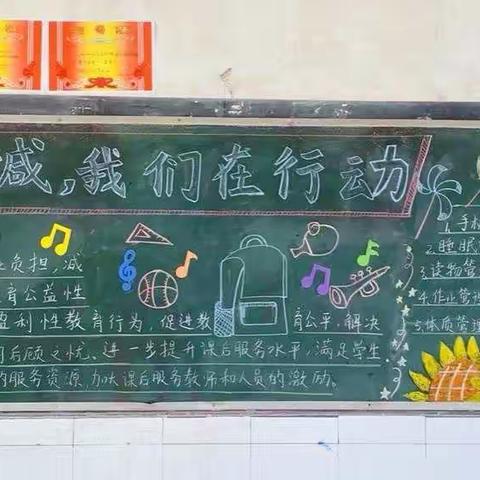 减,我们在行动
负担,减
育公益性
盈利性教育行为,促进教育公平,解决
后顾之忧、进一步提升课后服务水平,满足学生
的服务资源,加大课后服务教师和人员的激励。
1.手机
2.睡眠
3.读物管
4.作业管理
5.体质管理